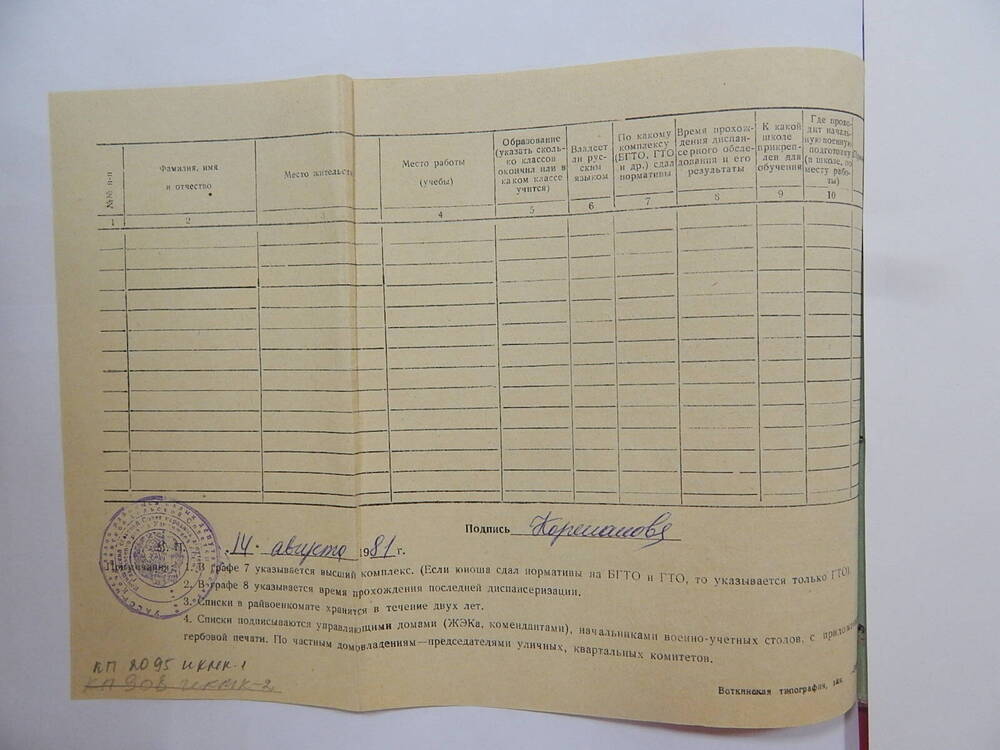 №№ п-п
Фамилия, имя
и отчество
Место жительств
Место работы
(учебы)
Образование
(указать сколь-
ко классов
окончил или в
каком классе
учится)
Владеет
ли рус-
ским
языком
По какому
комплексу
(БГТО, ГТО
и др.) сдал
нормативы
Время прохож-
дения диспан-
серного обсле-
дования и его
результаты
К какой
школе
прикреп-
лен для
обучения
Где прохо-
дит началь-
ную военную
подготовку
(в школе, по
месту рабо-
ты)
1 2 3 4 5 6 7 8 9 10
Подпись Корепанова
М. П. 14. августа 1981 г.
Примечания: 1. В графе 7 указывается высший комплекс. (Если юноша сдал нормативы на БГТО и ГТО, то указывается только ГТО).
2. В графе 8 указывается время прохождения последней диспансеризации.
3. Списки в райвоенкомате хранятся в течение двух лет.
4. Списки подписываются управляющими домами (ЖЭКа, комендантами), начальниками военно-учетных столов, с прилож
гербовой печати. По частным домовладениям—председателями уличных, квартальных комитетов.
КП 2095 ИКМК-1
КП 908 ИКМК-2
Воткинская типография, зак.